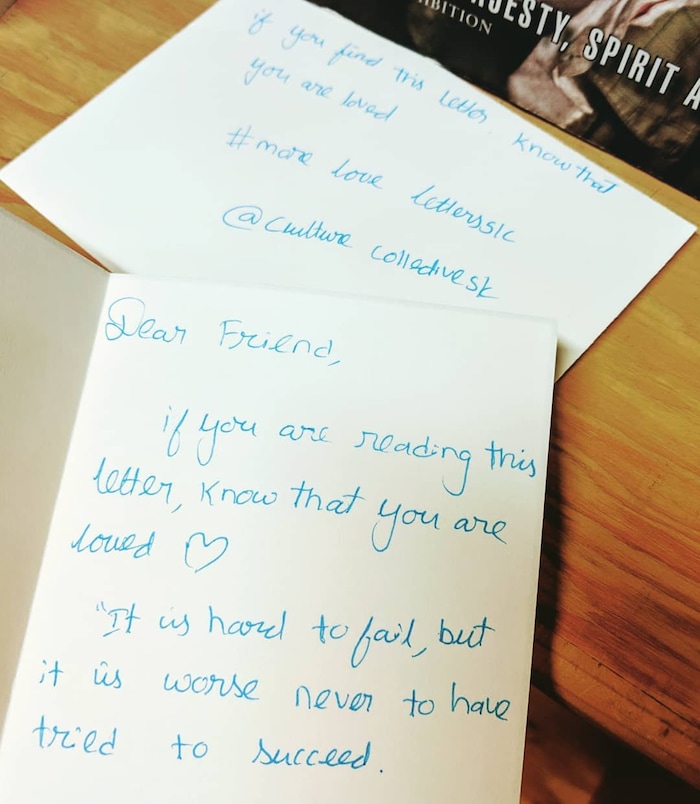 UESTY, SPIRIT A
IBITION
if you find this letter, know that
you are loved
#more love letterssk
@culture collectivesk
Dear Friend,
if you are reading this
letter, know that you are
loved ♡
"It is hard to fail, but
it is worse never to have
tried to succeed.